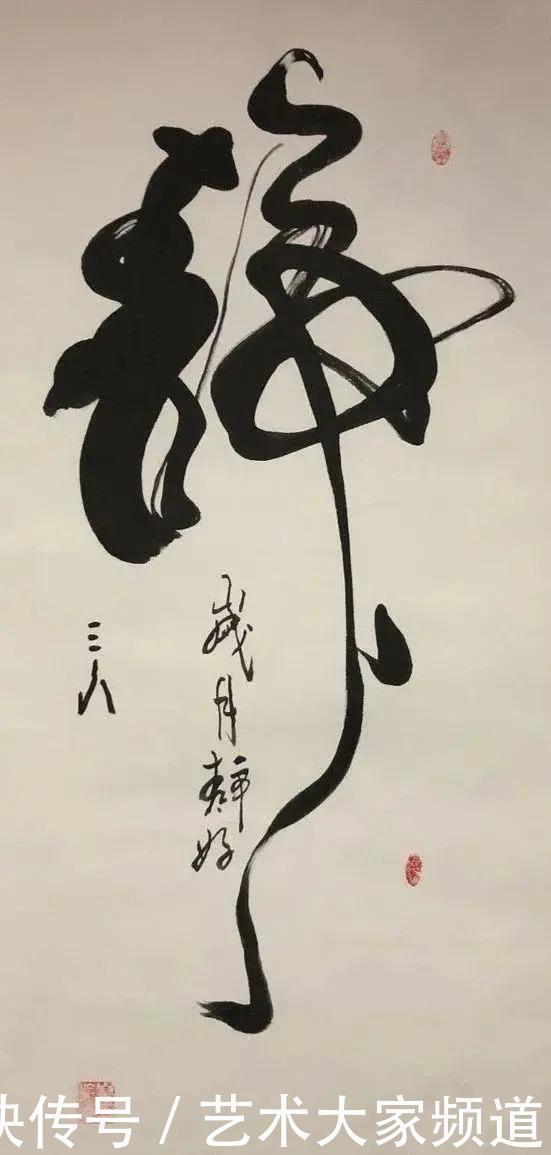 静
歲月静好
快传号 / 艺术大家频道